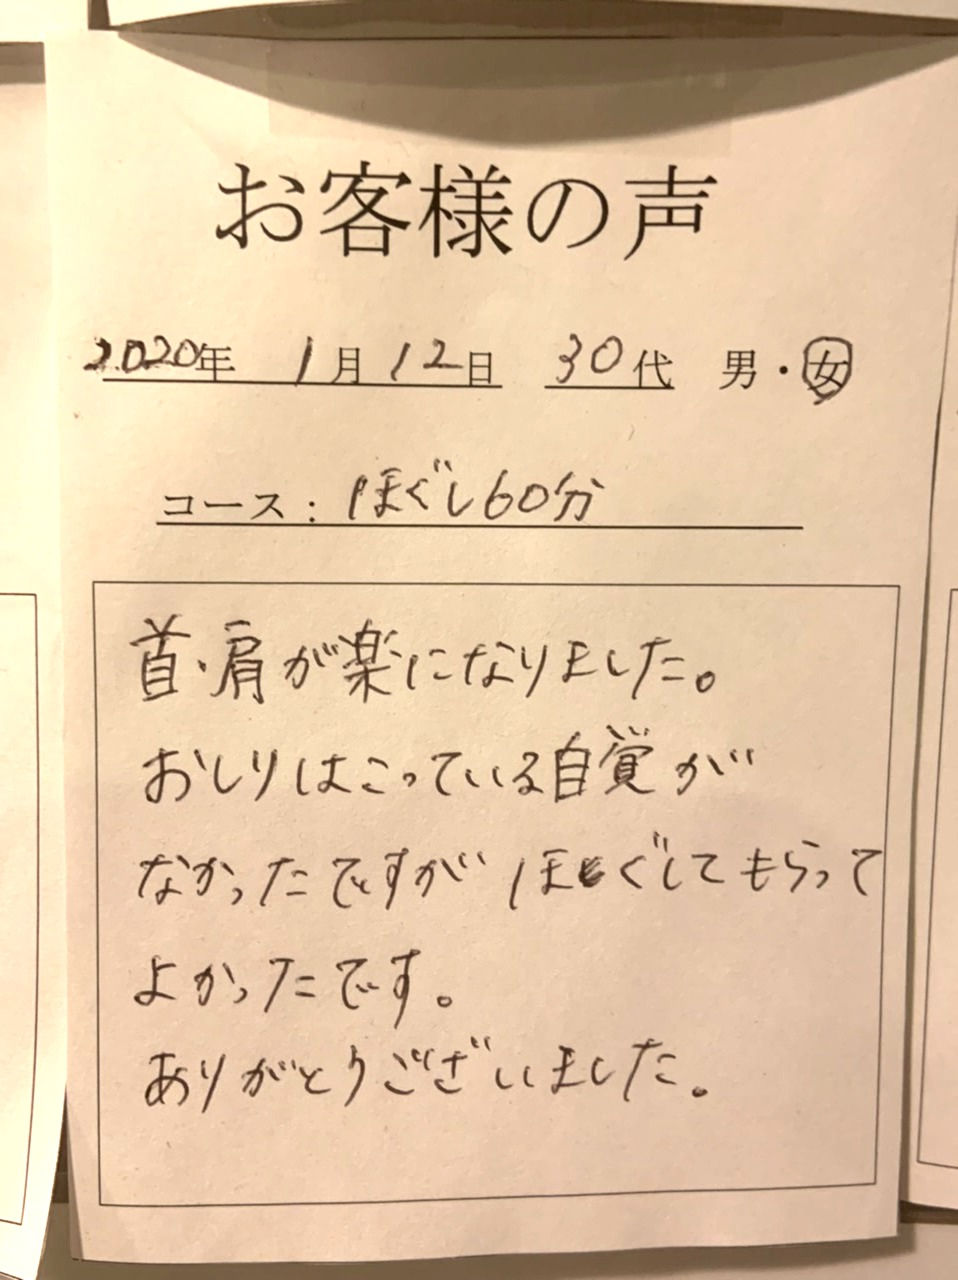 お客様の声
2020年 1月12日 30代 男・女
コース：ほぐし60分
首・肩が楽になりました。
おしりはこっている自覚が
なかったですがほぐしてもらって
よかったです。
ありがとうございました。